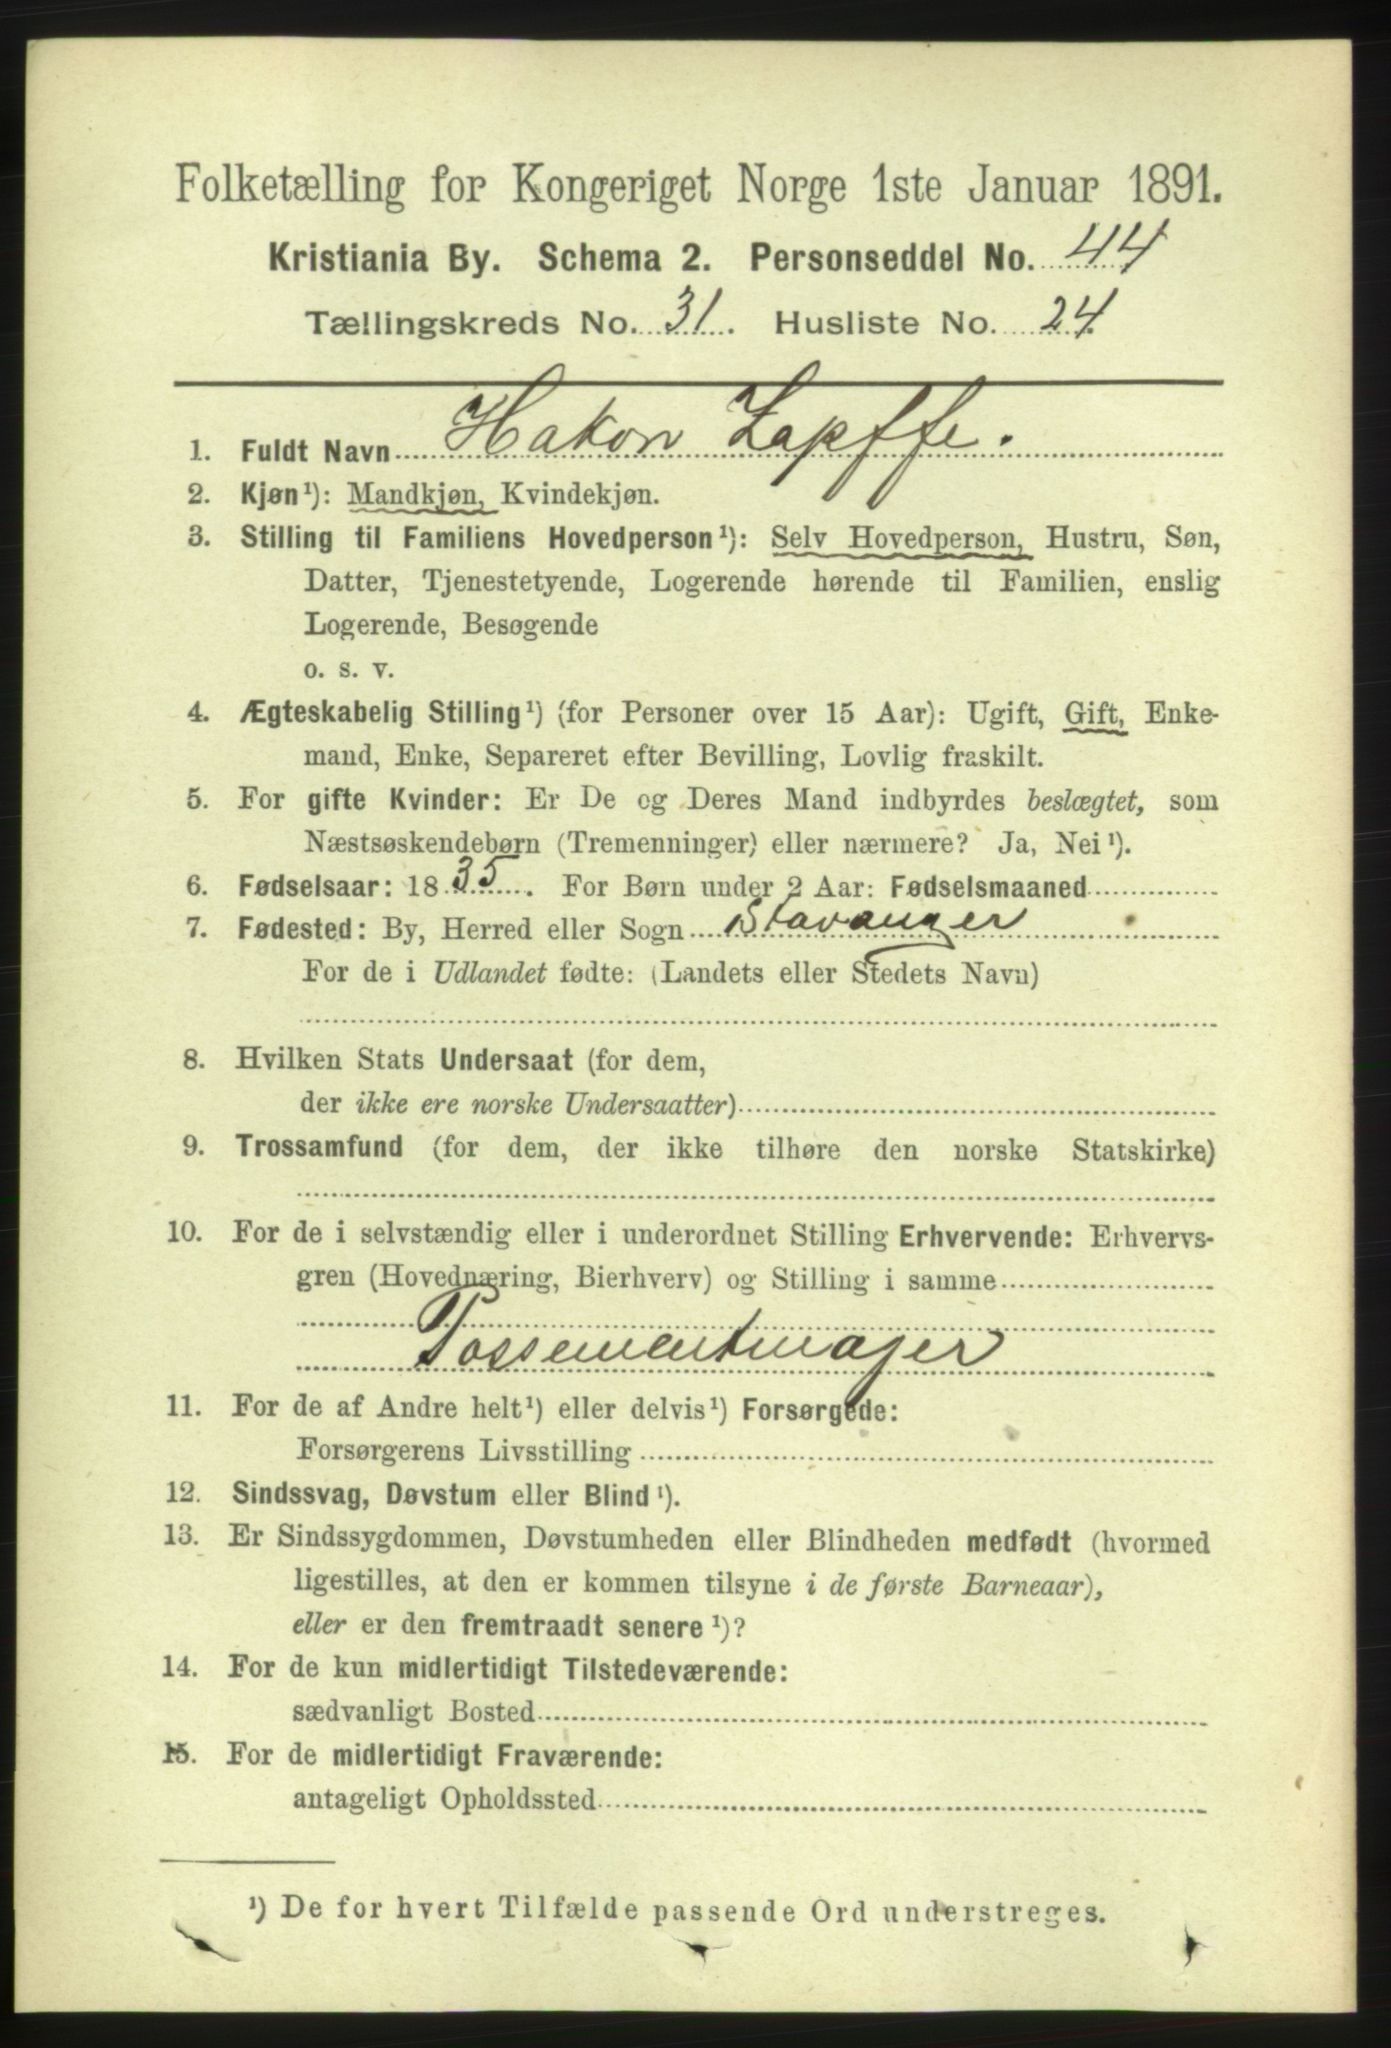 Folketælling for Kongeriget Norge 1ste Januar 1891.
Kristiania By. Schema 2. Personseddel No. 44
Tællingskreds No. 31. Husliste No. 24
1. Fuldt Navn Hakon Zapffe.
2. Kjøn¹): Mandkjøn, Kvindekjøn.
3. Stilling til Familiens Hovedperson¹): Selv Hovedperson, Hustru, Søn,
Datter, Tjenestetyende, Logerende hørende til Familien, enslig
Logerende, Besøgende
o. s. v.
4. Ægteskabelig Stilling¹) (for Personer over 15 Aar): Ugift, Gift, Enke-
mand, Enke, Separeret efter Bevilling, Lovlig fraskilt.
5. For gifte Kvinder: Er De og Deres Mand indbyrdes beslægtet, som
Næstsøskendebørn (Tremenninger) eller nærmere? Ja, Nei¹).
6. Fødselsaar: 1835. For Børn under 2 Aar: Fødselsmaaned
7. Fødested: By, Herred eller Sogn Stavanger
For de i Udlandet fødte: (Landets eller Stedets Navn)
8. Hvilken Stats Undersaat (for dem,
der ikke ere norske Undersaatter)
9. Trossamfund (for dem, der ikke tilhøre den norske Statskirke)
10. For de i selvstændig eller i underordnet Stilling Erhvervende: Erhvervs-
gren (Hovednæring, Bierhverv) og Stilling i samme
Possementmager
11. For de af Andre helt¹) eller delvis¹) Forsørgede:
Forsørgerens Livsstilling
12. Sindssvag, Døvstum eller Blind¹).
13. Er Sindssygdommen, Døvstumheden eller Blindheden medfødt (hvormed
ligestilles, at den er kommen tilsyne i de første Barneaar),
eller er den fremtraadt senere¹)?
14. For de kun midlertidigt Tilstedeværende:
sædvanligt Bosted
15. For de midlertidigt Fraværende:
antageligt Opholdssted
¹) De for hvert Tilfælde passende Ord understreges.